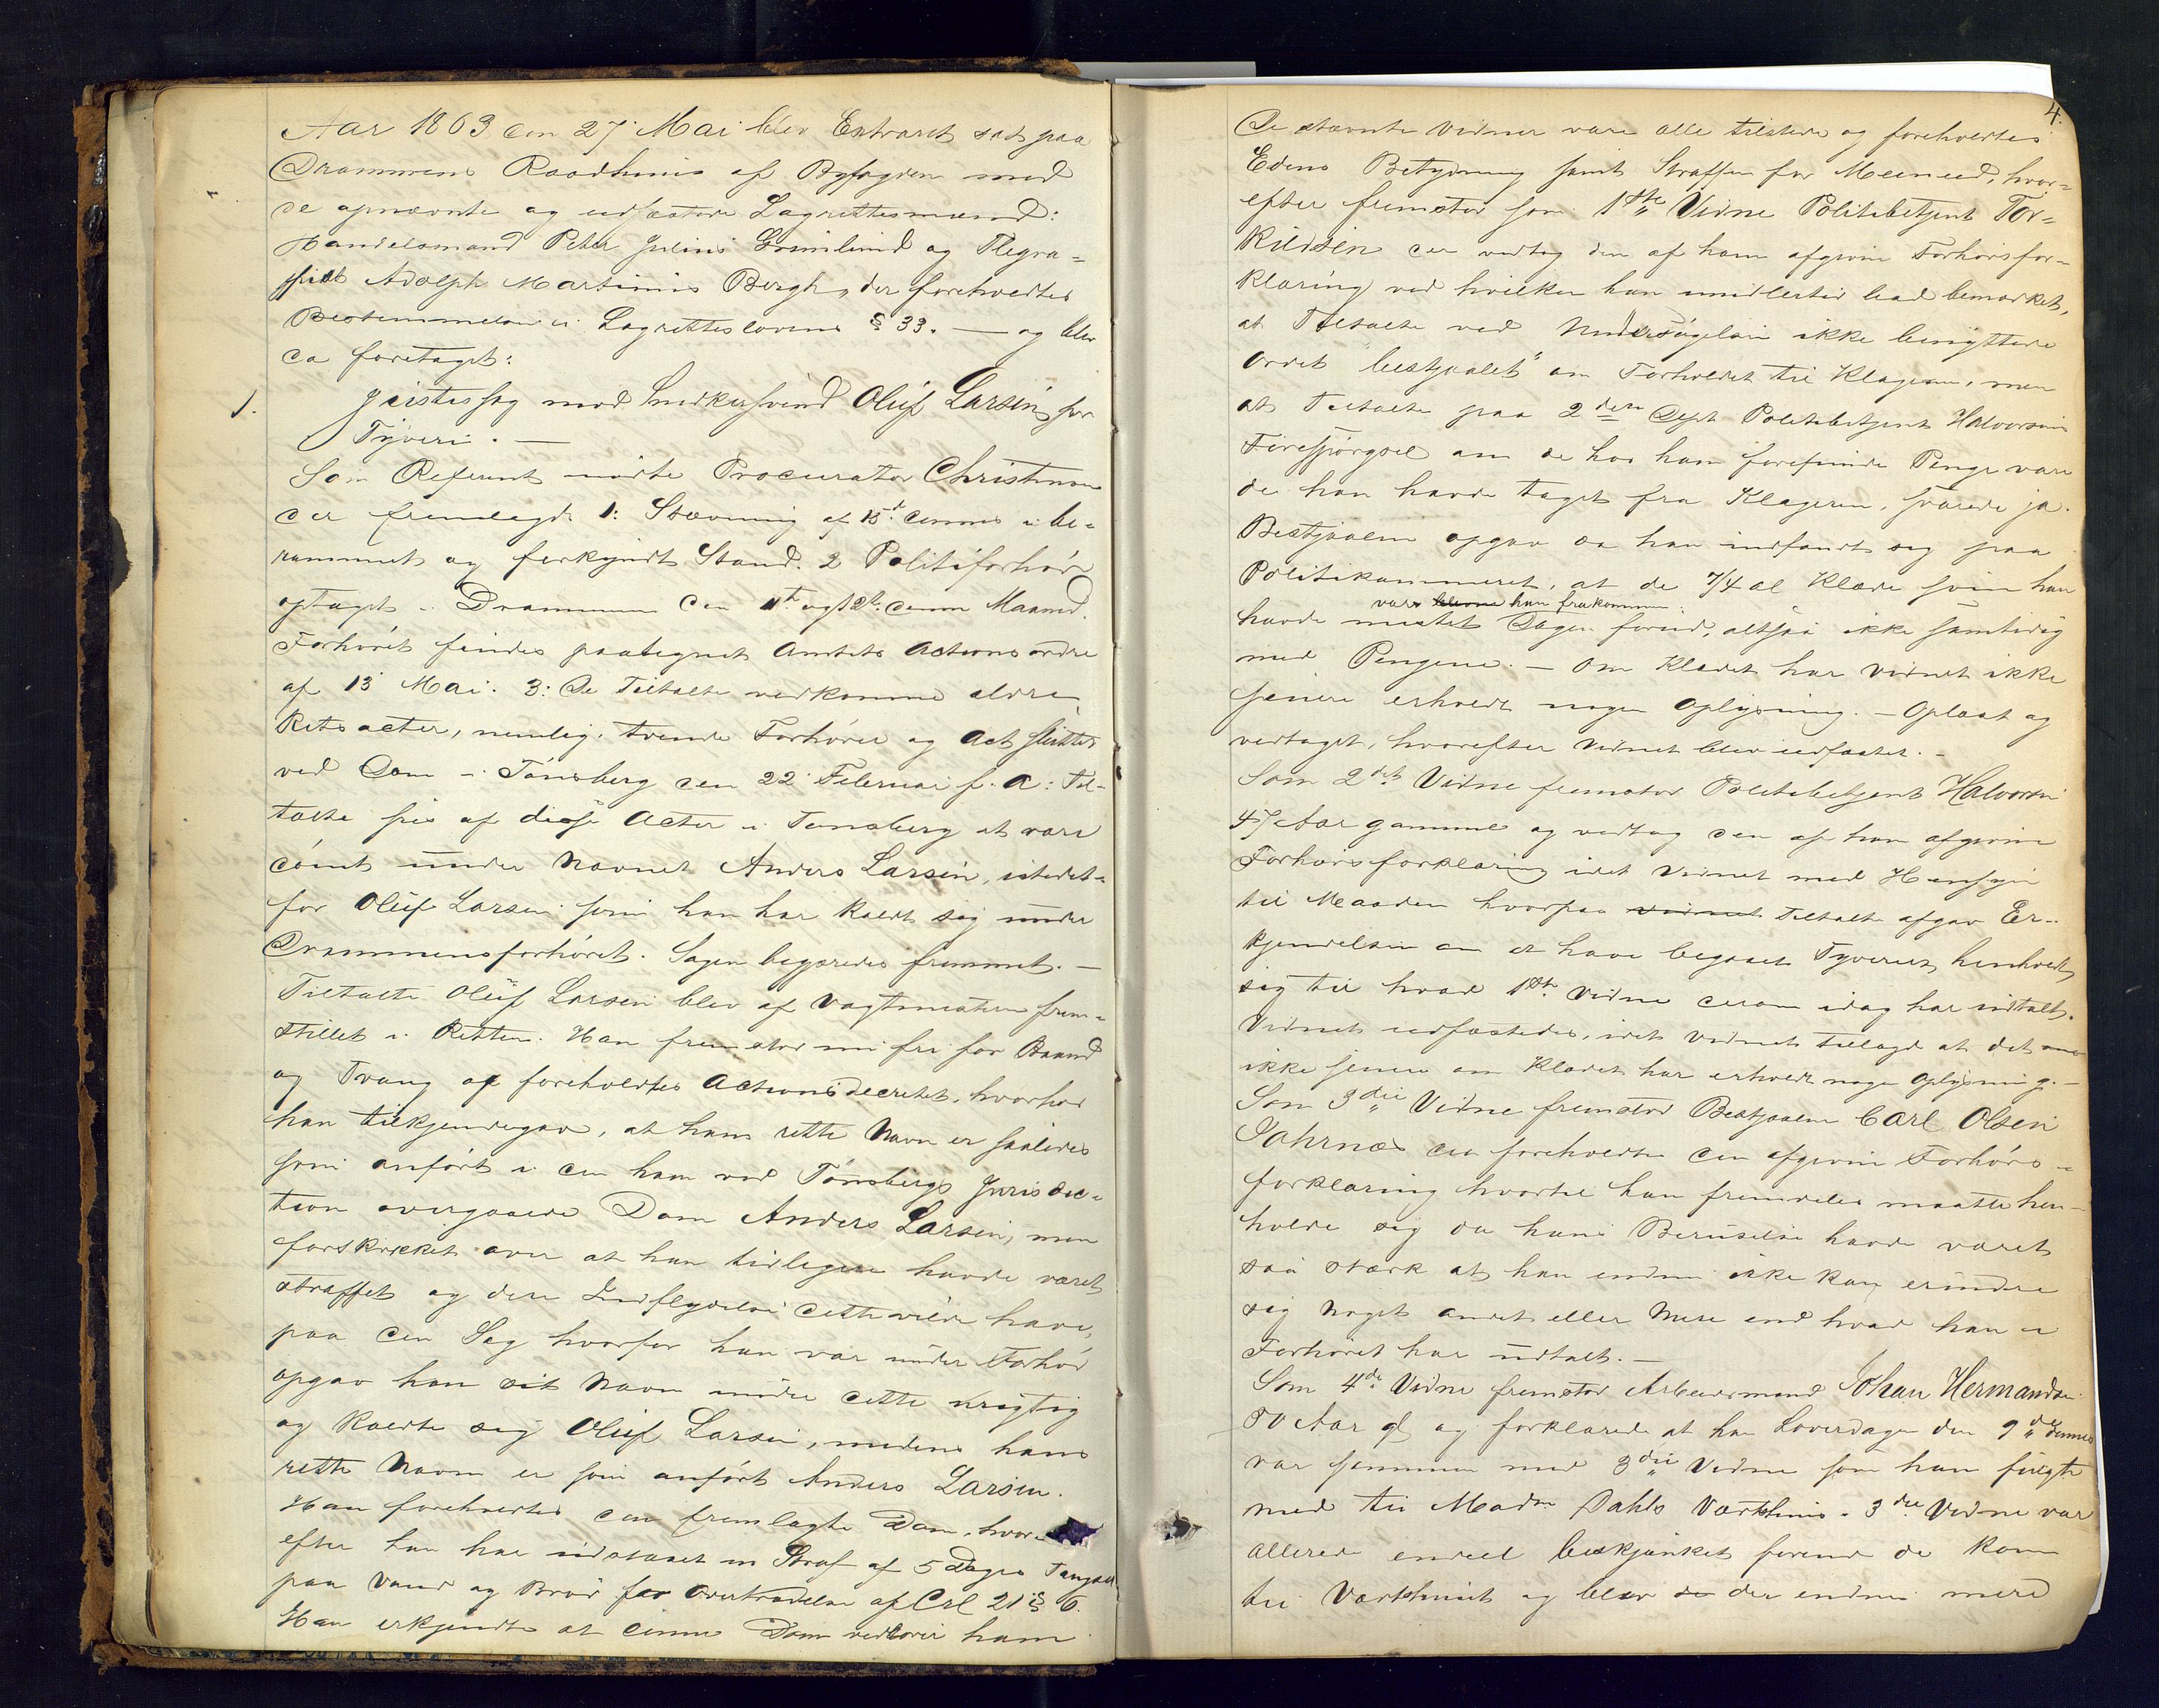 Aar 1863 den 27 Mai blev Extraret sat paa
Drammens Raadhuus af Byfogden med
de opnævnte og edfæstede Lagrettesmænd:
Handelsmand Peter Julius Grimlund og Tlegra-
fist Adolph Martinius Bergh, der foreholdtes
Bestemmelsen i Lagretteslovens § 33. — og blev
da foretaget:
1. Justitssag mod Snedkersvend Oluf Larsen for
Tyveri. —
Som Referent mødte Procurator Christensen
der fremlagde 1: Stævning af 15d. dennes i be-
rammet og forkyndt Stand. 2 Politiforhør
optaget i Drammen den 11te og 12te denne Maaned.
Forhøret findes paategnet Amtets Actionsordre
af 13 Mai. 3: De Tiltalte vedkomme ældre
Retsacter, nemlig tvende Forhører og Act sluttet
ved Dom i Tønsberg den 22 Februar f. A: Til-
talte sees af disse Acter i Tønsberg at være
dømt under Navnet Anders Larsen, istedet-
for Oluf Larsen som han har kaldt sig under
Drammensforhøret. Sagen begjæredes fremmet. —
Tiltalte Oluf Larsen blev af Vagtmesteren frem-
stillet i Retten. Han fremstod nu fri for Baand
og Tvang og foreholdtes Actionsdecretet, hvorhos
han tilkjendegav, at hans rette Navn er saaledes
som anført i den ham ved Tønsbergs Jurisdic-
tion overgaaede Dom Anders Larsen, men
forskrækket over at han tidligere havde været
straffet og den Indflydelse dette vilde have,
paa den Sag hvorfor han var under Forhør
opgav han sit Navn under dette urigtig
og kaldte sig Oluf Larsen, medens hans
rette Navn er som anført Anders Larsen.
Han foreholdtes den fremlagte Dom, hvor-
efter han har udstaaet en Straf af 5 Dages Fængsel
paa Vand og Brød for Overtrædelse af Crl 21 § 6.
Han erkjendte at denne Dom vedkommer ham
4.
De stævnte Vidner vare alle tilstede og foreholdtes
Edens Betydning samt Straffen for Meeneed, hvor-
efter fremstod som 1ste Vidne Politibetjent Tor-
kildsen der vedtog den af ham afgivne Forhørsfor-
klaring ved hvilken han imidlertid bad bemærket,
at Tiltalte ved Undersøgelsen ikke benyttede
Ordet "bestjaalet" om Forholdet til Klageren, men
at Tiltalte paa 2den Dept Politibetjent Halvorsens
Forespørgsel om de hos ham forefundne Penge vare
de han havde taget fra Klageren, svarede ja.
Bestjaalne opgav da han indfandt sig paa
Politikammeret, at de 7/4 al Klæde som han
vare blevne ham frakommen
havde mistet Dagen forud, altsaa ikke samtidig
med Pengene. — Om Klædet har Vidnet ikke
senere erholdt nogen Oplysning. — Oplæst og
vedtaget, hvorefter Vidnet blev edfæstet. —
Som 2det Vidne fremstod Politibetjent Halvorsen
47 Aar gammel og vedtog den af ham afgivne
Forhørsforklaring idet Vidnet med Hensyn
til Maaden hvorpaa vidnet Tiltalte afgav Er-
kjendelsen om at have begaaet Tyveriet, henholdt
sig til hvad 1ste Vidne derom idag har udtalt.
Vidnet edfæstedes, idet Vidnet tillagde at det
ikke senere om Klædet har erholdt nogen Oplysning. —
Som 3die Vidne fremstod Bestjaalne Carl Olsen
Johrnæs der foreholdtes den afgivne Forhørs-
forklaring hvortil han fremdeles maatte hen-
holde sig da hans Beruselse havde været
saa stærk at han endnu ikke kan erindre
sig noget andet eller mere end hvad han i
Forhøret har udtalt. —
Som 4de Vidne fremstod Arbeidsmand Johan Hermandsen
50 Aar gl og forklarede at han Løverdagen den 9de dennes
var sammen med 3die Vidne som han fulgte
med til Madm Dahls Værtshuus. 3die Vidne var
allerede endeel beskjænket forend de kom
til Værtshuset og blev de der endnu mere